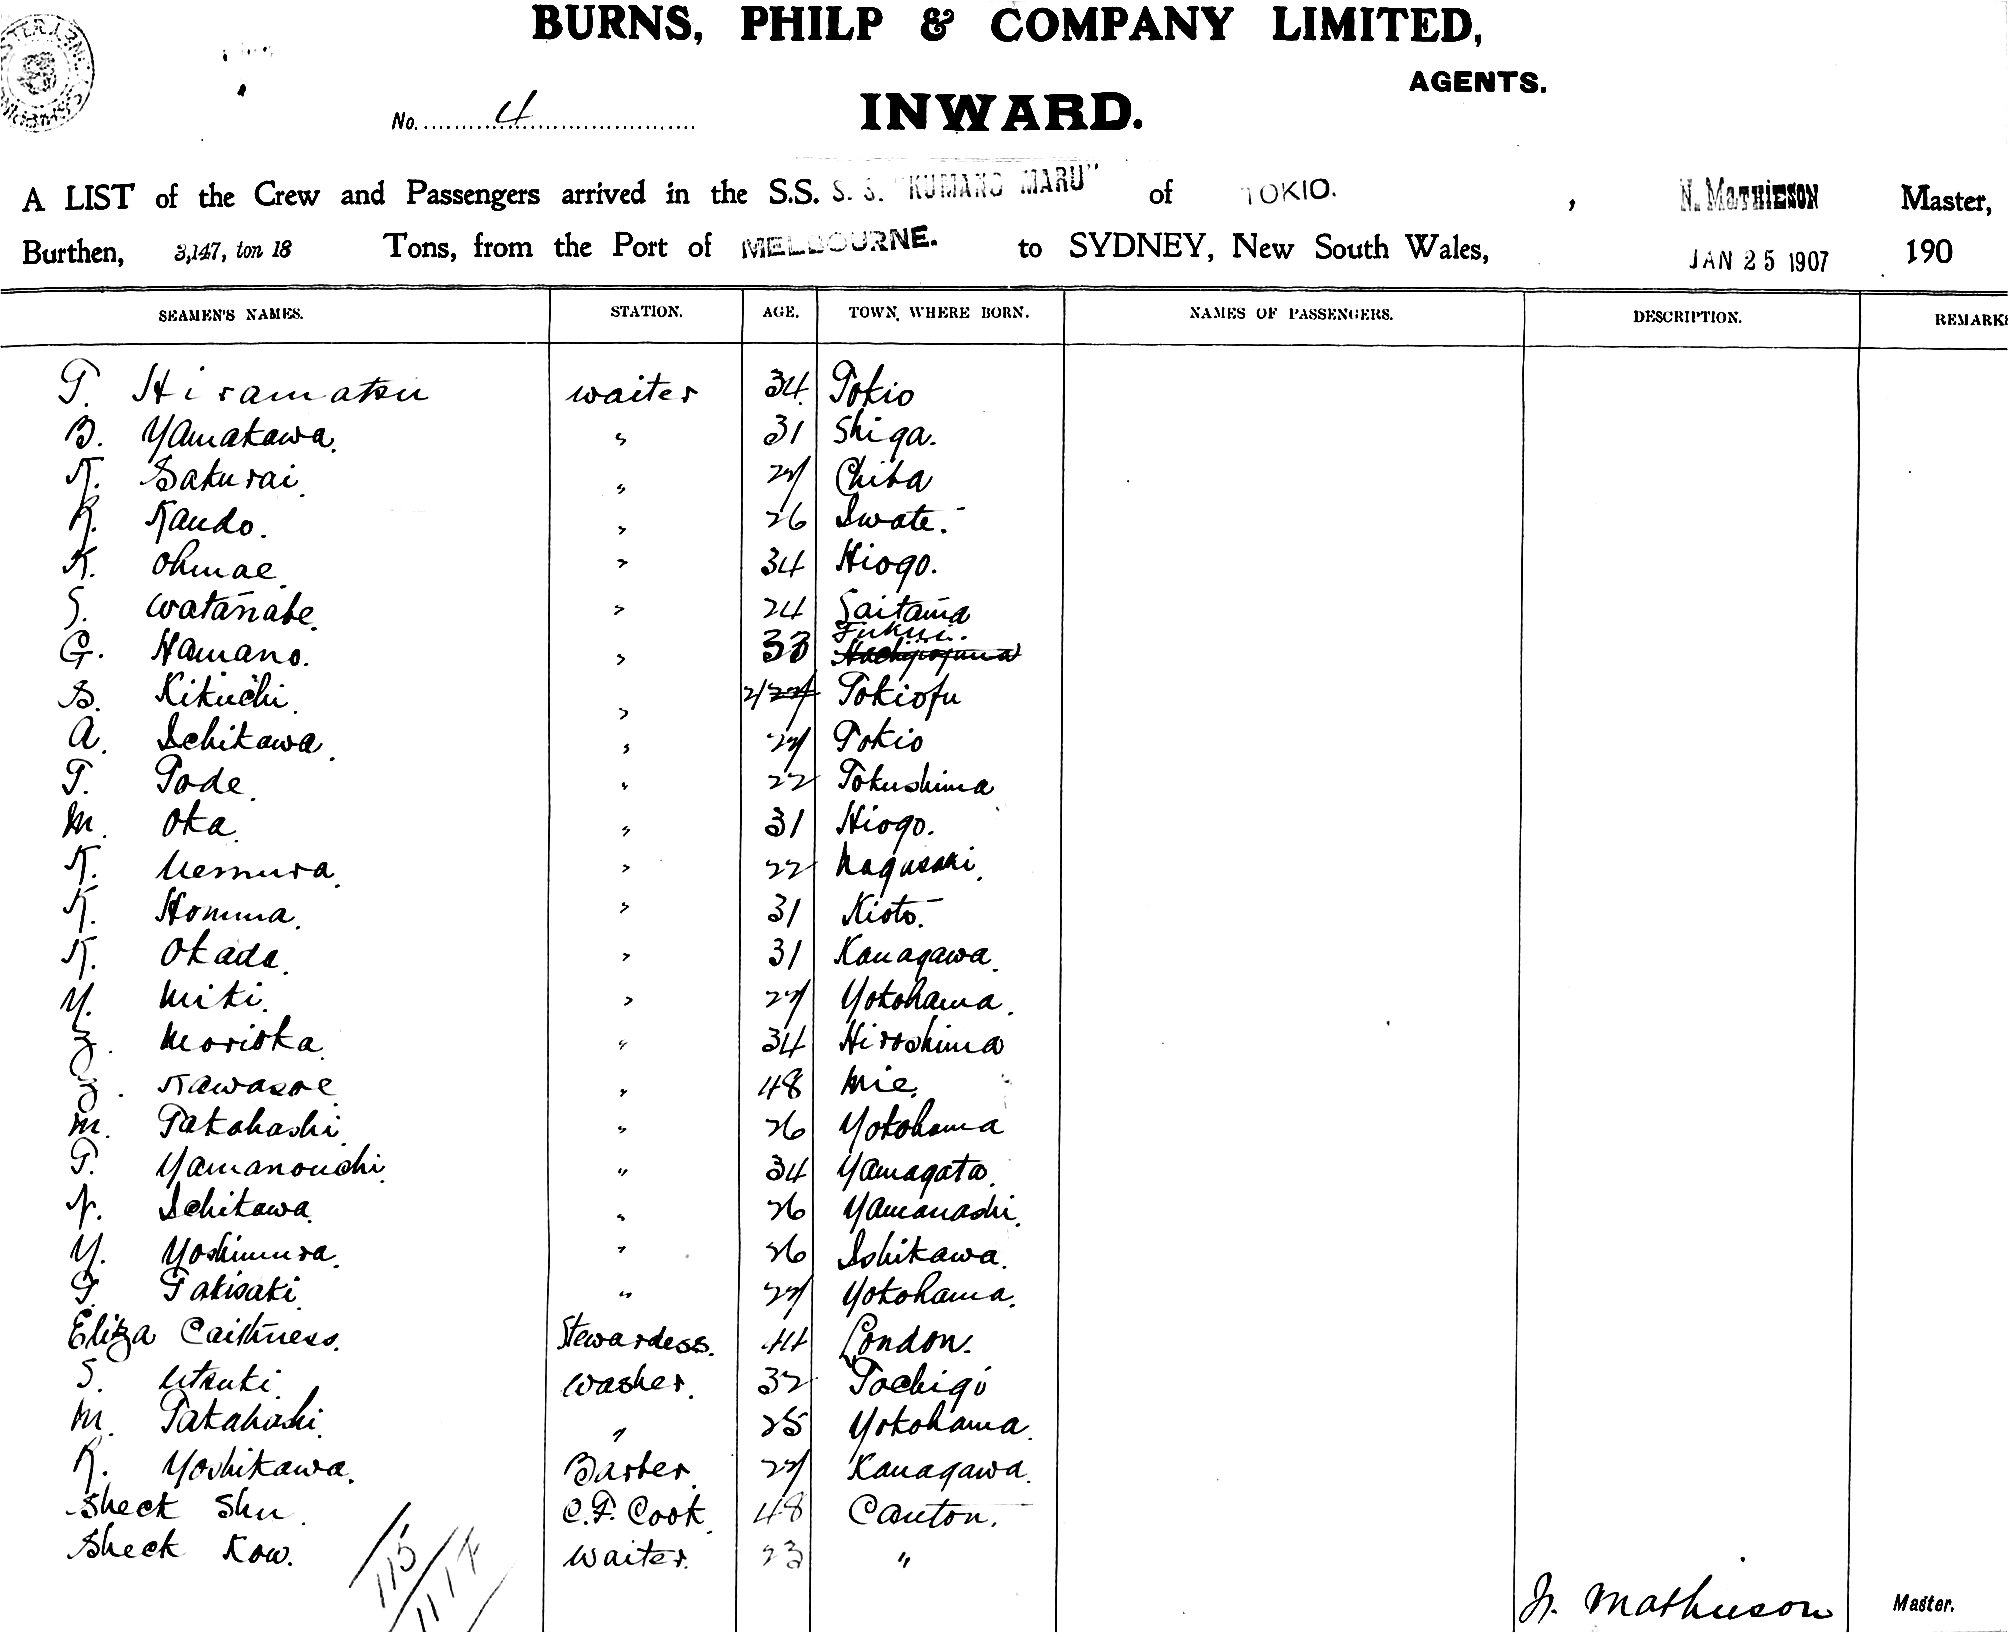 BURNS, PHILP & COMPANY LIMITED,
AGENTS.
No. 4 INWARD.
A LIST of the Crew and Passengers arrived in the S.S. S. S. "KUMANO MARU" of TOKIO. , N. MATHIESON Master,
Burthen, 3,147, ton 18 Tons, from the Port of MELBOURNE. to SYDNEY, New South Wales, JAN 25 1907 190
SEAMEN'S NAMES. STATION. AGE. TOWN, WHERE BORN. NAMES OF PASSENGERS. DESCRIPTION. REMARKS
T. Hiramatsu waiter 34 Tokio
B. Yamakawa. " 31 Shiga.
K. Sakurai. " 27 Chiba
R. Kando. " 26 Iwate.
K. Ohmae. " 34 Hiogo.
S. Watanabe. " 24 Saitama
G. Hamano. " 33 Fukui. Hachijojima
S. Kikuchi. " 21 27 Tokiofu
A. Ichikawa. " 27 Tokio
T. Tode. " 22 Tokushima
M. Oka. " 31 Hiogo.
K. Uemura. " 22 Nagasaki.
K. Homma. " 31 Kioto.
K. Okada. " 31 Kanagawa.
Y. Miki. " 27 Yokohama.
Z. Morioka. " 34 Hiroshima
Z. Kawasoe. " 48 Mie.
M. Takahashi. " 26 Yokohama
T. Yamanouchi. " 34 Yamagata.
N. Ichikawa. " 26 Yamanashi.
Y. Yoshimura. " 26 Ishikawa.
T. Takisaki. " 27 Yokohama.
Eliza Caithness. Stewardess. 44 London.
S. Utsuki. Washer. 32 Tochigi
M. Takahashi. " 25 Yokohama.
R. Yoshikawa. Barber. 27 Kanagawa.
Sheck Shu. C.F. Cook. 48 Canton.
Sheck Kow. Waiter. 23 "
115
1117
N. Mathieson Master.